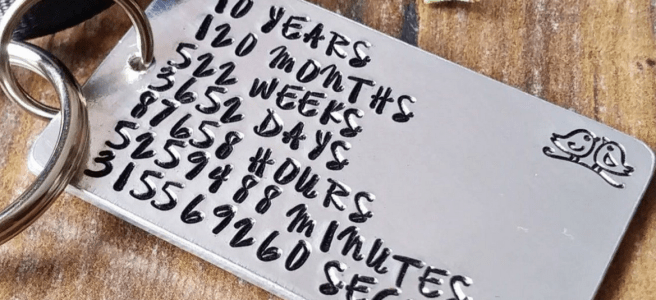 10 YEARS
120 MONTHS
522 WEEKS
3652 DAYS
87658 HOURS
5259488 MINUTES
315569260